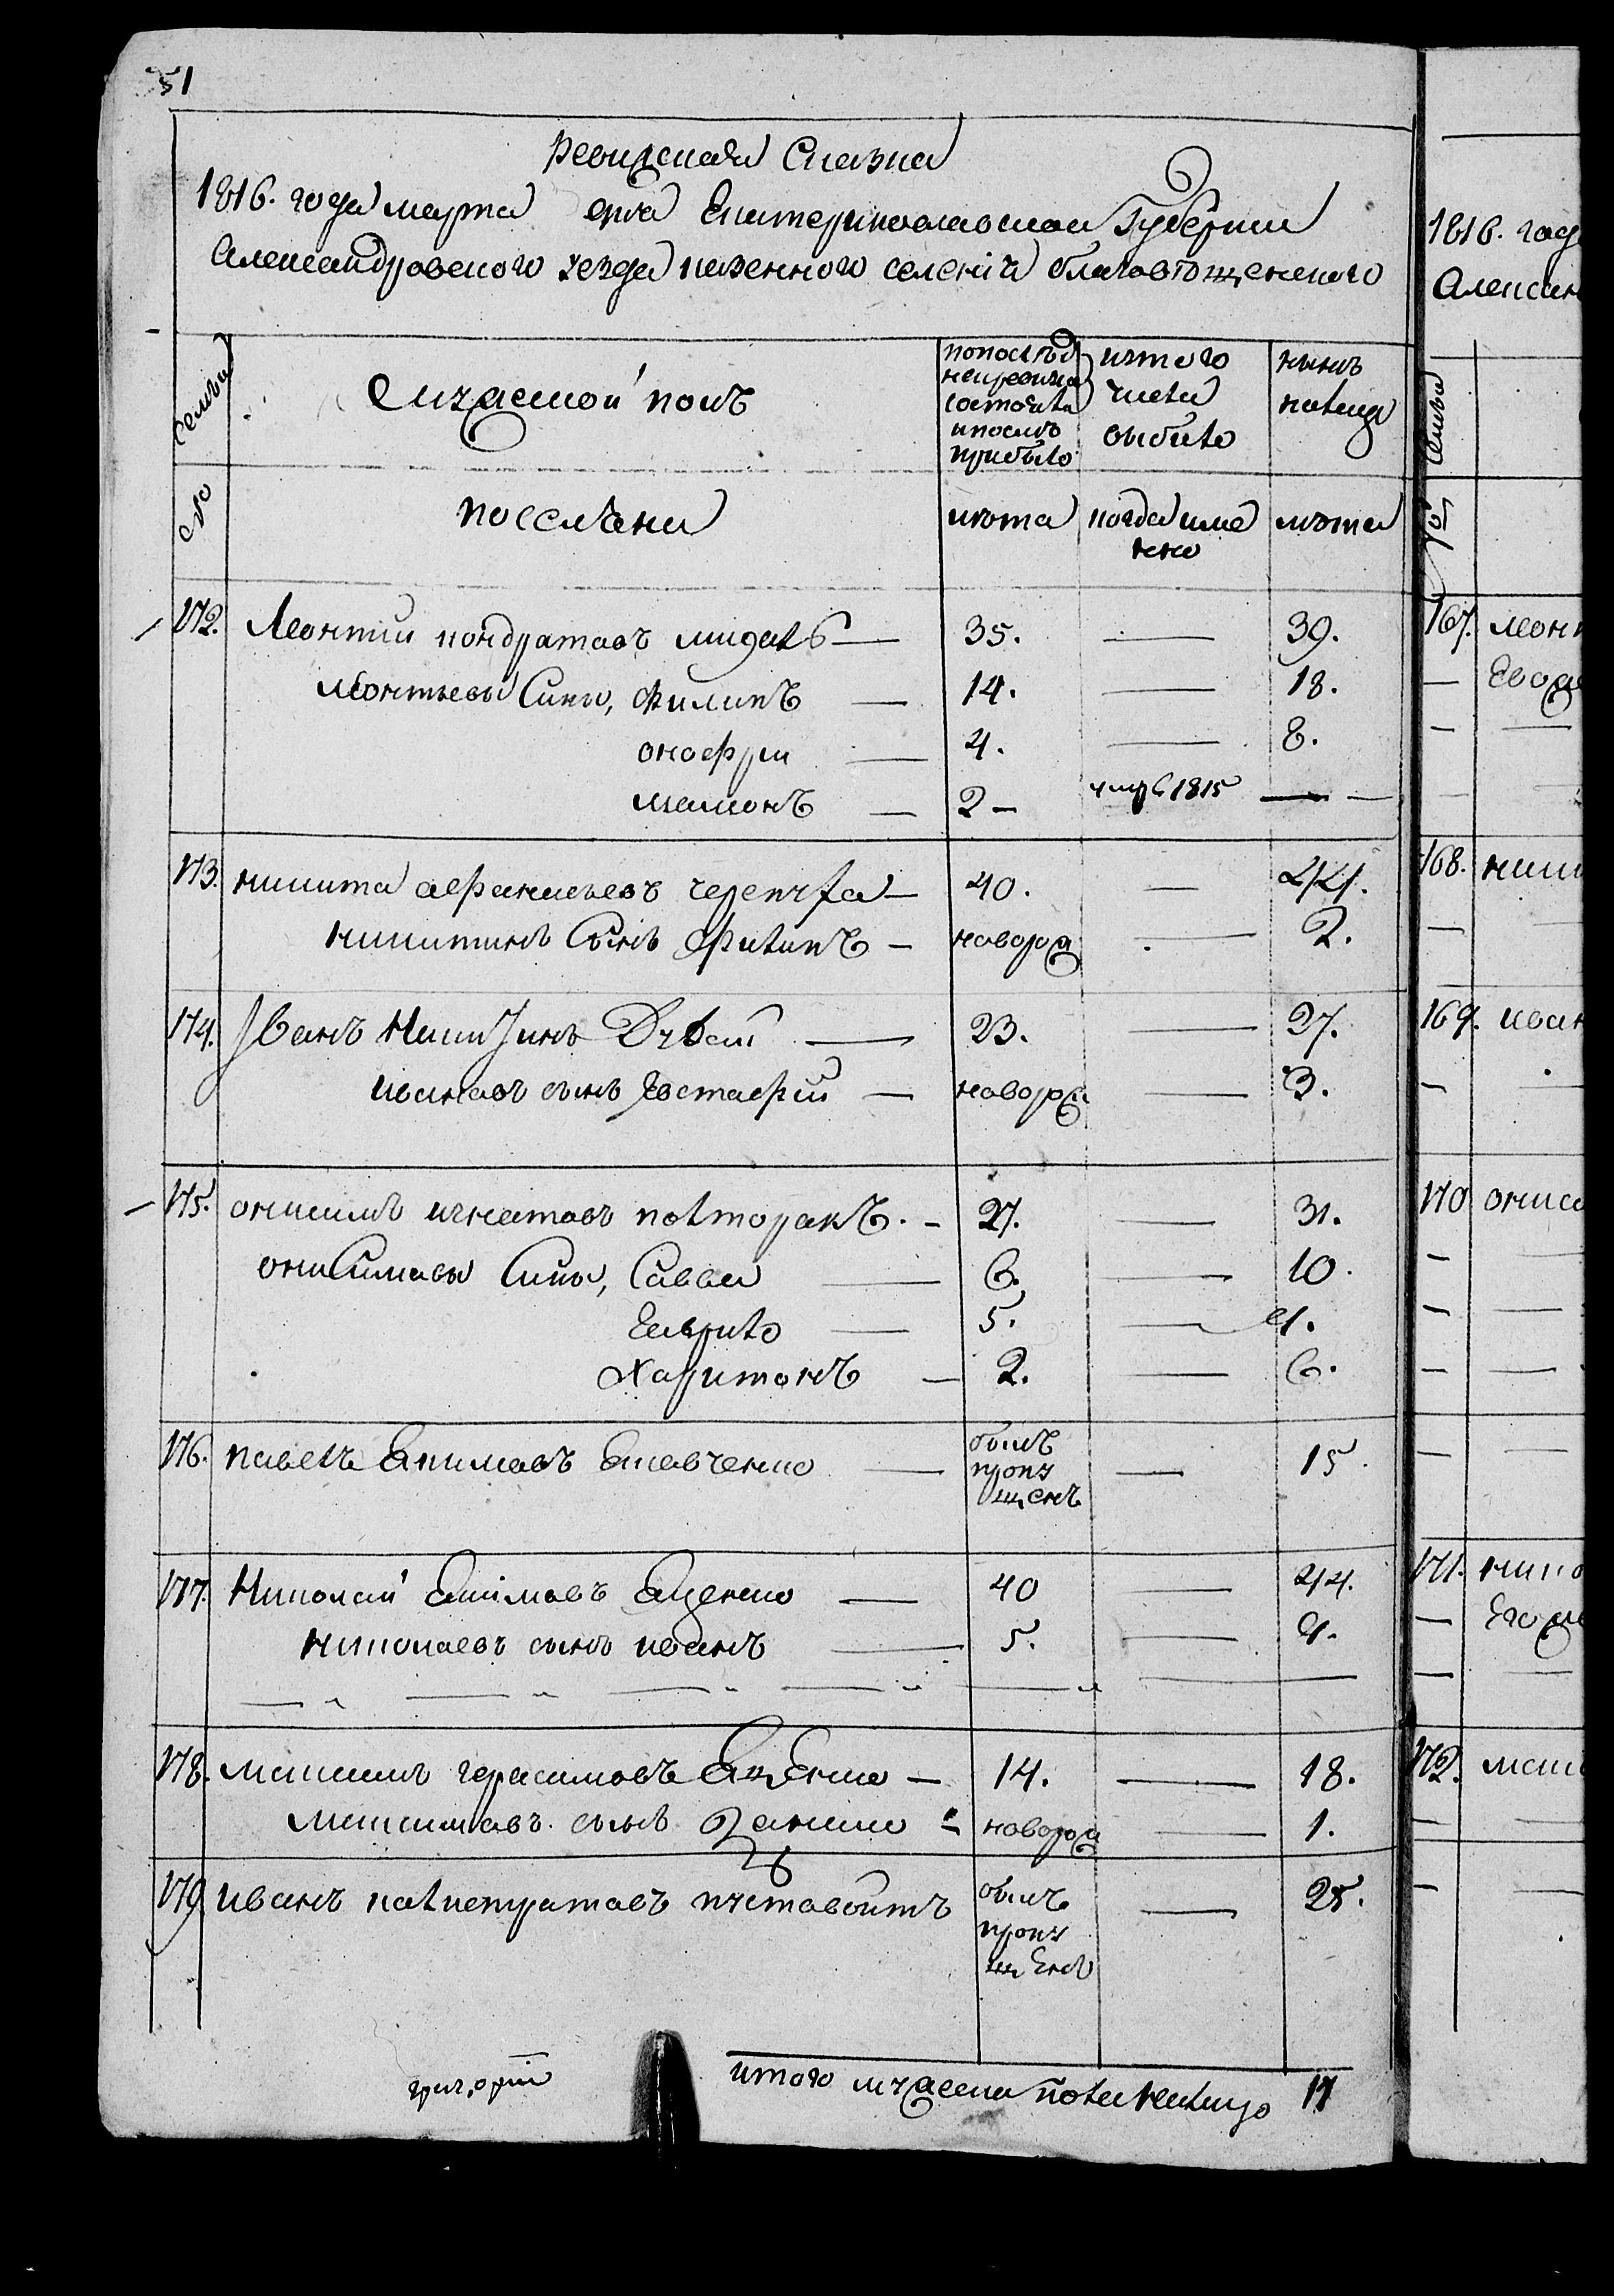 51
Ревизская Сказка
1816. года марта дня Екатеринославской Губернии
Александровского уезда казенного селения благовѣщенского
семьи
мужеской полъ
по послѣд
ней ревизи
состояло
и послѣ
прибыло
изъ того
числа
выбыло
нынѣ
на лицо
№
поселяне
лѣта
когда имен
но
лѣта
172. Леонтий кондратовъ 35. — 39.
леонтьевы Сины, Филипъ — 14. — 18.
онофри — 4. — 8.
мамонъ — 2 — умр 1815 — —
173. никита афанасьевъ черепаха — 40. — 44.
никитинъ Сынъ Филипъ — новорож — 2.
174. Иванъ Никитинъ — 23. — 27.
ивановъ сынъ Евстафий — новорож — 3.
175. онисимъ игнатовъ полторакъ. — 27. — 31.
онисимовы Сины, Савва — 6. — 10.
Гаврило — 5. — 9.
Харитонъ — 2. — 6.
176. павелъ Якимовъ — былъ
пропу
щенъ — 15.
177. Николай Якимовъ Яценко — 40 — 44.
николаевъ сынъ иванъ — 5. — 9.
178. максимъ герасимовъ Яценко — 14. — 18.
максимовъ сынъ Данило — новорож — 1.
179 иванъ калистратовъ пустовойтъ былъ
пропу
щенъ — 25.
григорий
итого мужеска пола налицо 17
1816. год
Алексан
семьи
№
167. леон
168. ники
169. иван
170 ониси
171. нико
172. макс